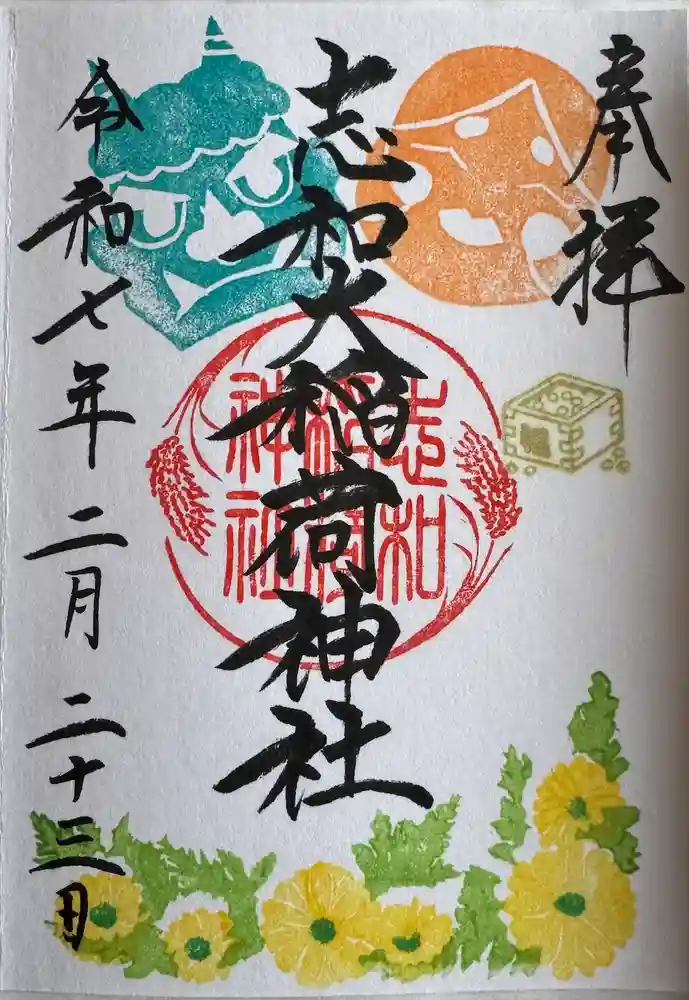 奉拝
志和大稲荷神社
志和
稲荷
神社
令和七年 二月 二十三日